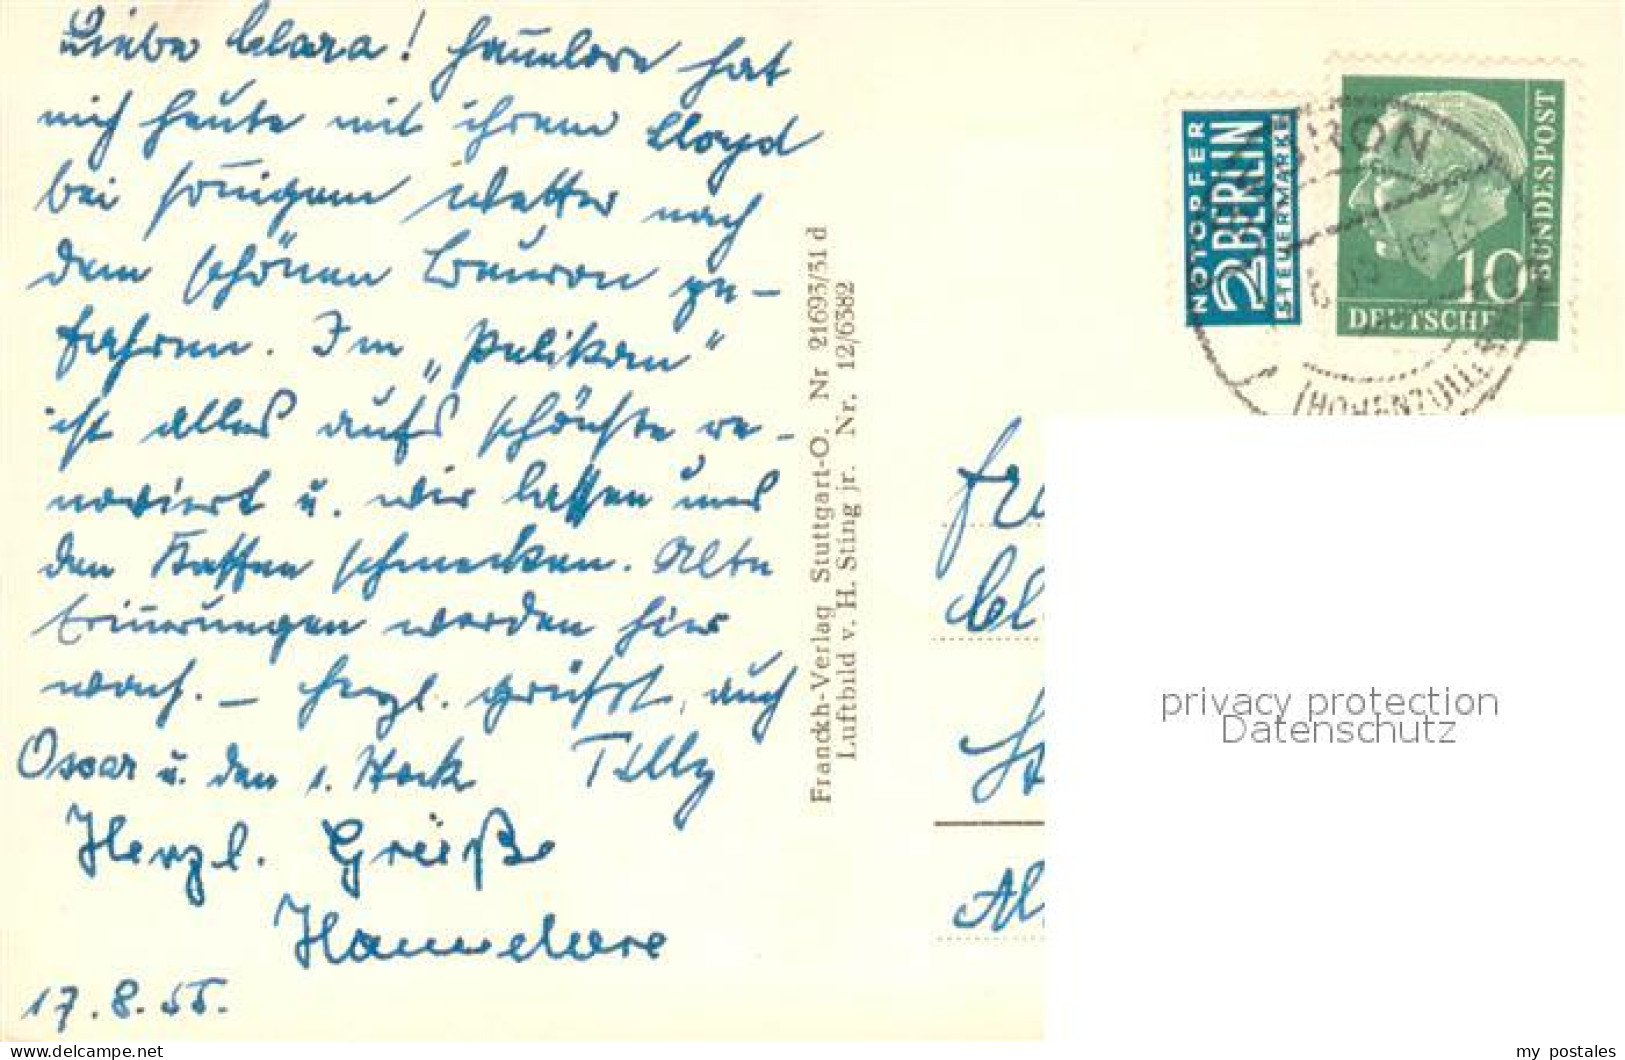 Liebe Clara! Hannelore hat
mich heute mit ihrem Lloyd
bei sonnigem Wetter nach
dem schönen Beuron ge-
fahren. Im „Pelikan"
ist alles aufs schönste re-
noviert u. wir lassen uns
den Kaffee schmecken. Alte
Erinnerungen werden hier
wach. – Herzl. grüsst, auch
Oscar u. den 1. Stock Tilly
Herzl. Grüße
Hannelore
17.8.55.
Franckh-Verlag Stuttgart-O. Nr 21693/31 d
Luftbild v. H. Sting jr. Nr. 12/6382
NOTOPFER
2 BERLIN
STEUERMARKE
DEUTSCHE
BUNDESPOST
10
BEURON
(HOHENZOLLE
privacy protection
Datenschutz
my postales
www.delcampe.net